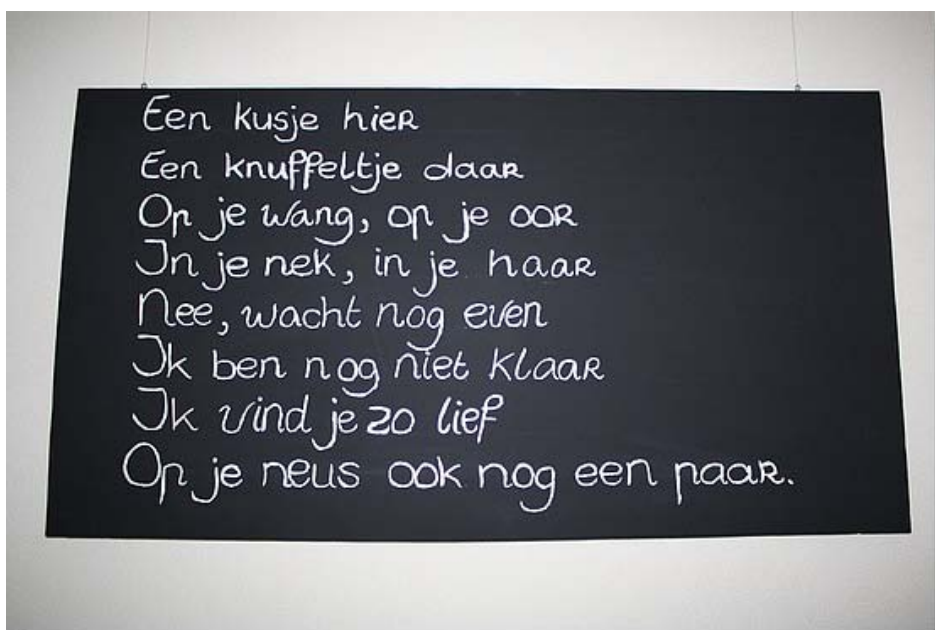 Een kusje hier
Een knuffeltje daar
Op je wang, op je oor
In je nek, in je haar
Nee, wacht nog even
Ik ben nog niet klaar
Ik vind je zo lief
Op je neus ook nog een paar.